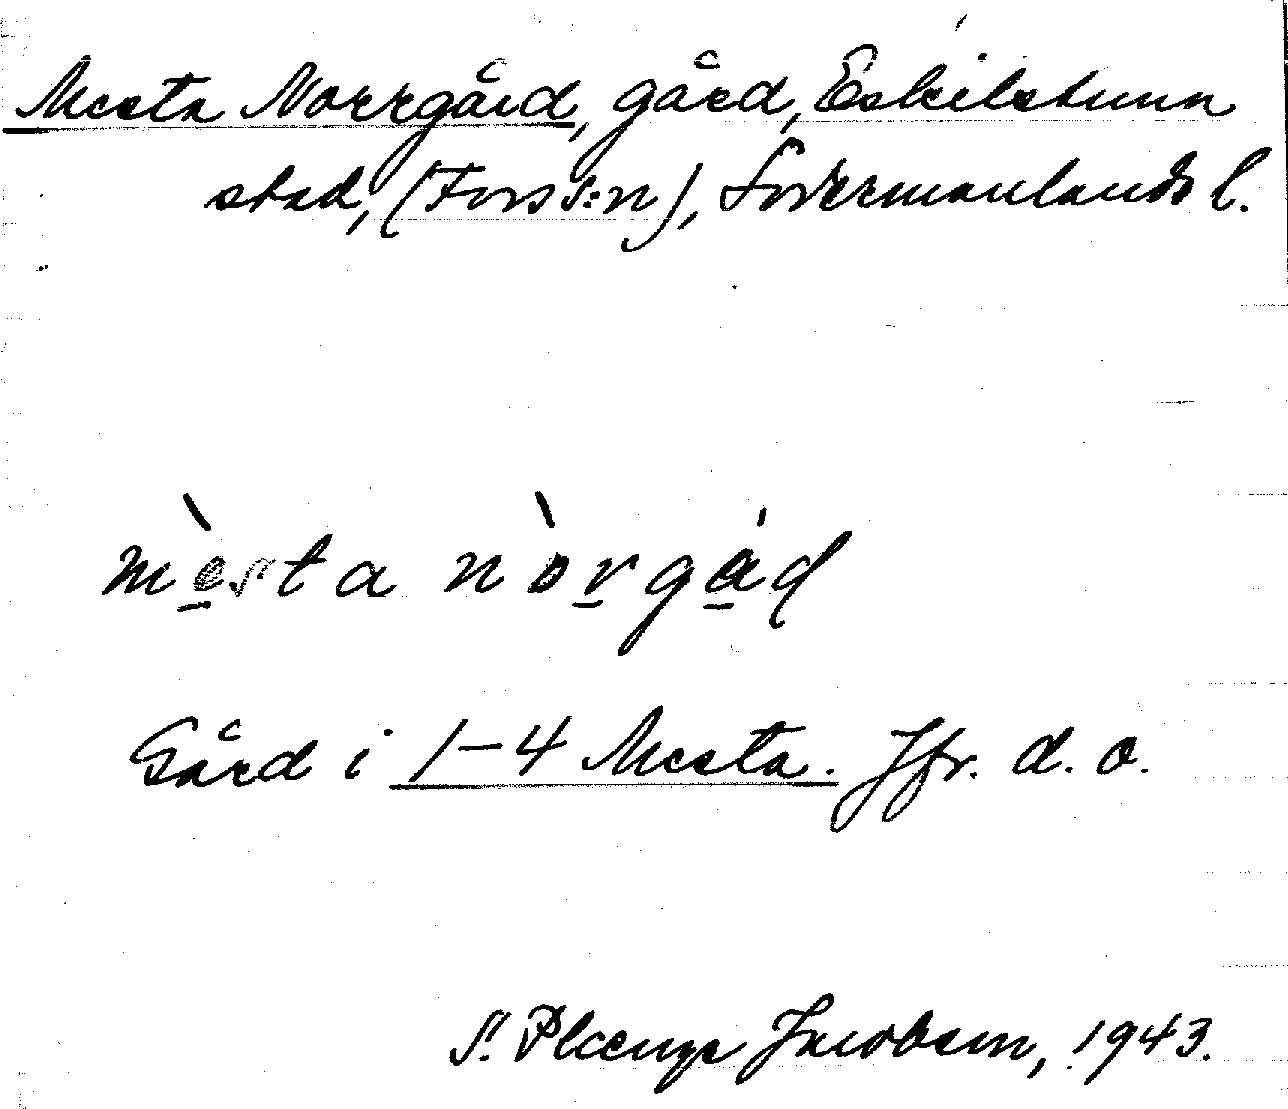 Mesta Norrgård, gård, Eskilstuna
stad, (Fors s:n), Södermanlands l.
mèsta nòrgád
Gård i 1-4 Mesta. Jfr. d. o.
S. Plænge Jacobson, 1943.